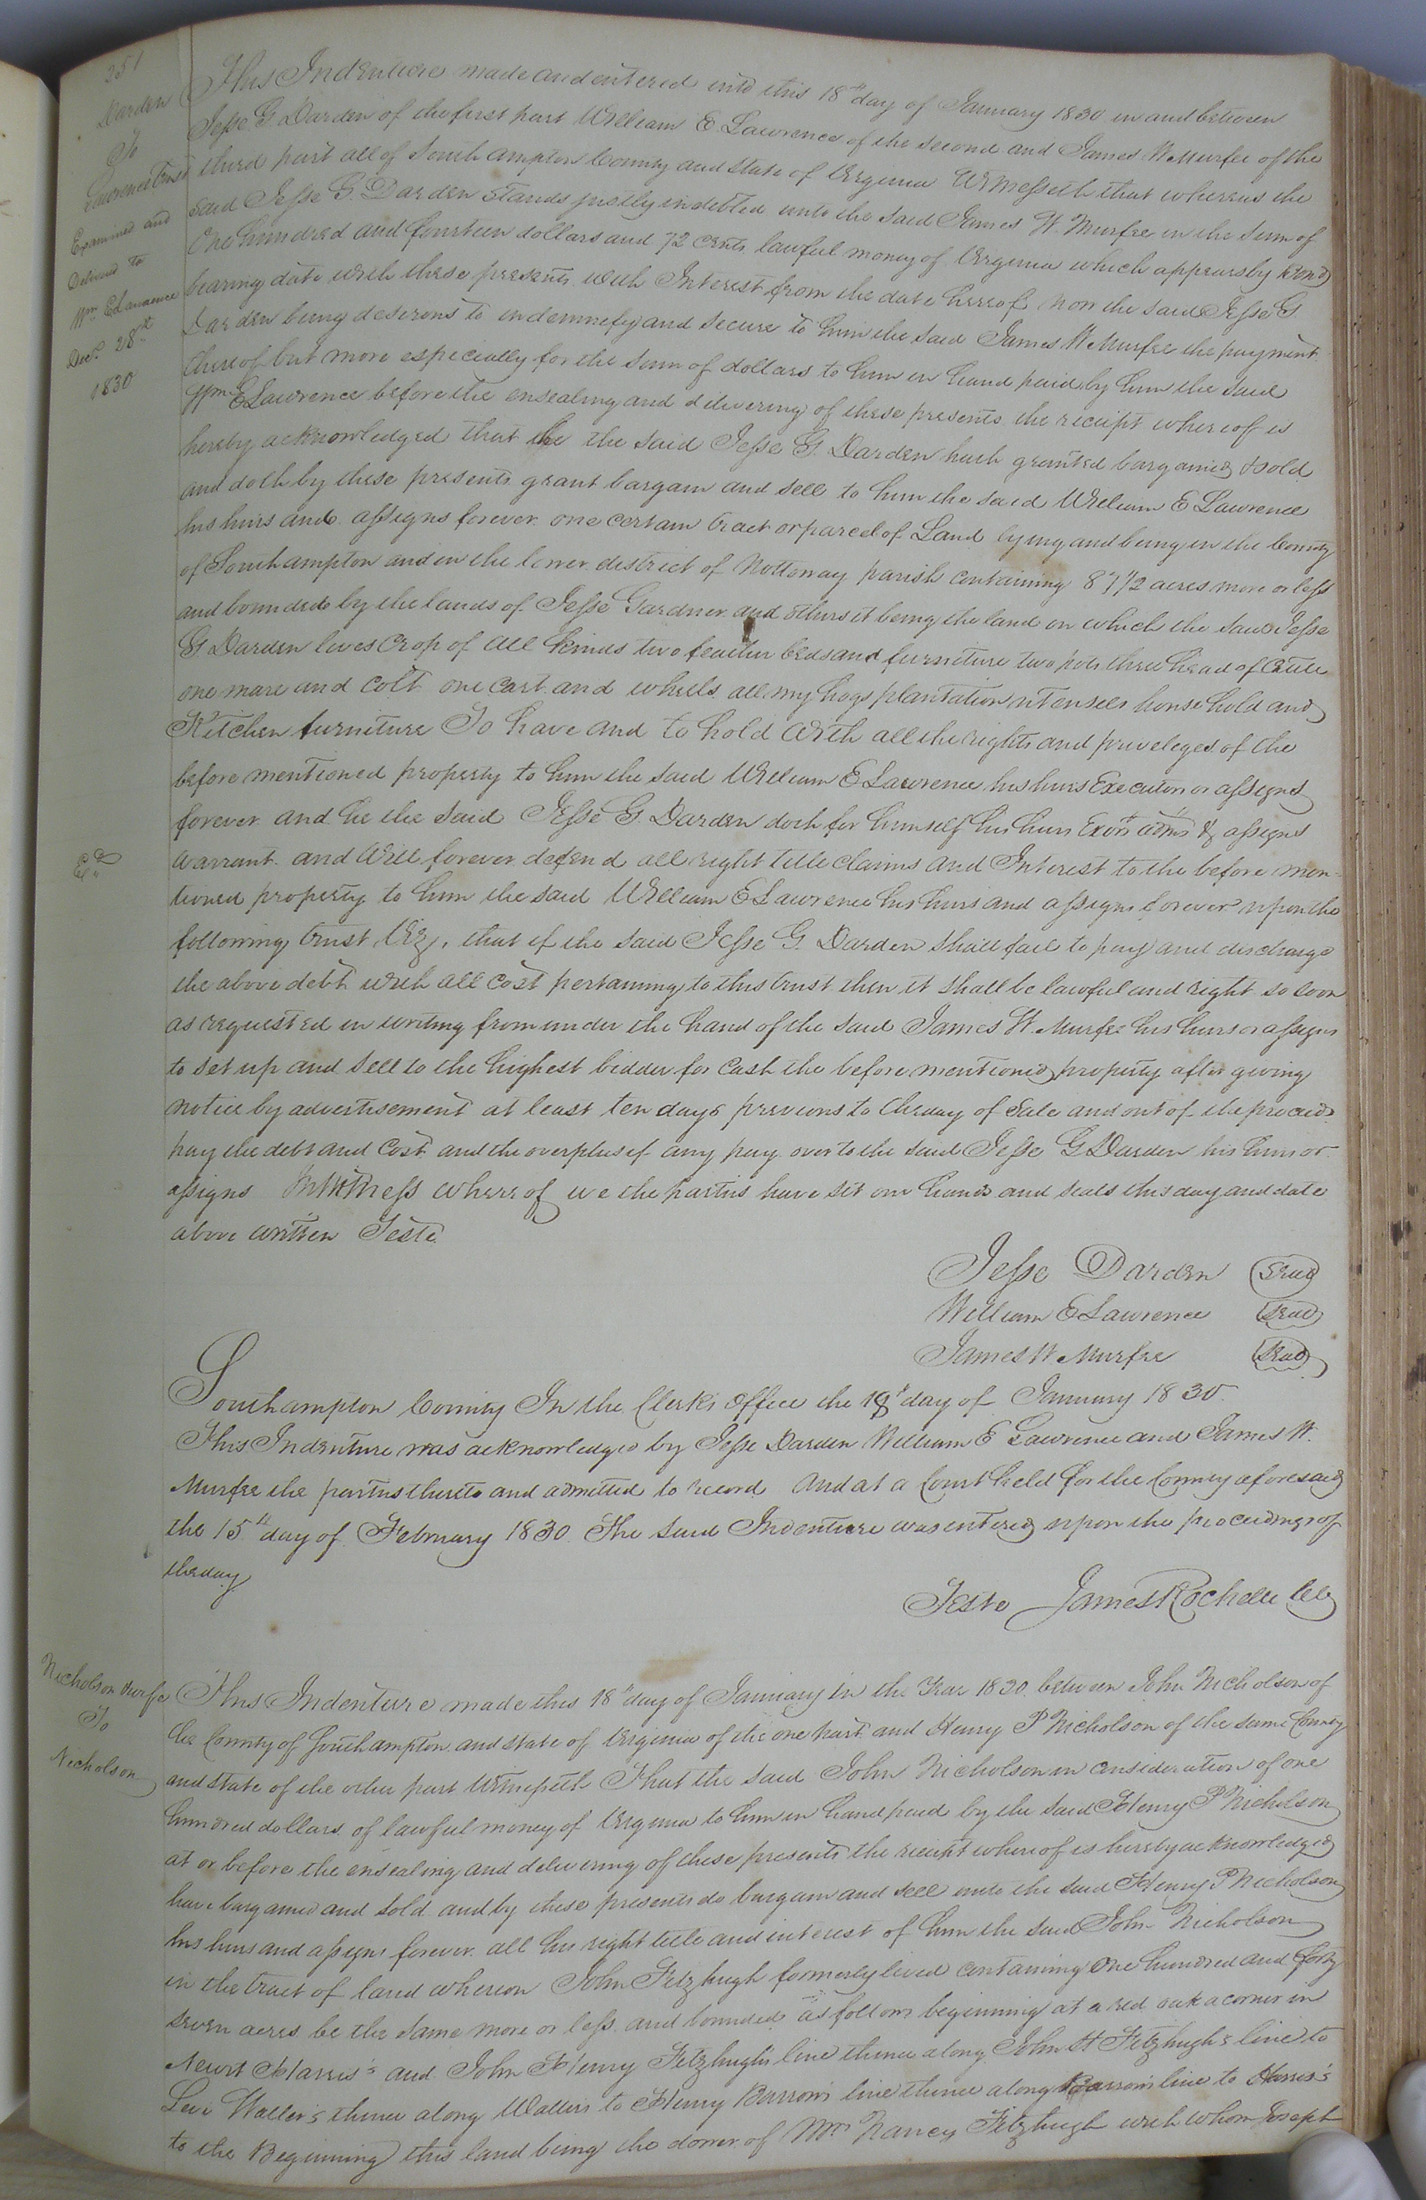 251
Darden
To
Lawrence Trust
Examined and
Delivered to
Wm. E Lawrence
Decr. 28th
1830
This Indenture made and entered into this 18th day of January 1830 in and between
Jesse G Darden of the first part William E Lawrence of the second and James W Murfee of the
third part all of Southampton County and State of Virginia Witnesseth that whereas the
said Jesse G. Darden Stands justly indebted unto the said James W. Murfee in the sum of
One hundred and fourteen dollars and 72 cents lawful money of Virginia which appears by bond
bearing date with these presents with Interest from the date hereof now the said Jesse G
Darden being desirous to indemnify and secure to him the said James W Murfee the payment
thereof but more especially for the sum of dollars to him in hand paid by him the said
Wm. E Lawrence before the ensealing and delivering of these presents the receipt whereof is
hereby acknowledged that he the said Jesse G. Darden hath granted bargained & sold
and doth by these presents grant bargain and sell to him the said William E Lawrence
his heirs and assigns forever one certain tract or parcel of Land lying and being in the County
of Southampton and in the lower district of Nottoway parish containing 87 1/2 acres more or less
and bounded by the lands of Jesse Gardner and others it being the land on which the said Jesse
G Darden lives Crop of all kinds two feather beds and furniture two pots three head of Cattle
one mare and colt one cart and wheels all my hogs plantation utensels house hold and
Kitchen furniture To have and to hold With all the rights and priveleges of the
before mentioned property to him the said William E Lawrence his heirs Executors or assigns
forever and he the said Jesse G. Darden doth for himself his heirs Exors adms & assigns
Warrant and Will forever defend all right title claims and Interest to the before men
tioned property to him the said William E Lawrence his heirs and assigns forever upon the
following trust Viz, that if the said Jesse G. Darden shall fail to pay and discharge
the above debt with all cost pertaining to this trust then it shall be lawful and right so soon
as requested in writing from under the hand of the said James W. Murfee his heirs or assigns
to set up and sell to the highest bidder for Cash the before mentioned property after giving
notice by advertisement at least ten days previous to the day of Sale and out of the proceeds
pay the debt and Cost and the overplus if any pay over to the said Jesse G Darden his heirs or
assigns In Witness whereof we the parties have set our hands and seals this day and date
above written Teste
Jesse Darden Seal
William E Lawrence Seal
James W Murfee Seal
Southampton County In the Clerks Office the 18th day of January 1830
This Indenture was acknowledged by Jesse Darden William E Lawrence and James W.
Murfee the parties thereto and admitted to record And at a Court held for the County aforesaid
the 15th day of February 1830 The said Indenture was entered upon the proceedings of
the day
Teste James Rochelle Clk
Nicholson
To
Nicholson
This Indenture made this 18th day of January in the Year 1830 between John Nicholson of
the County of Southampton and State of Virginia of the one part and Henry P Nicholson of the same County
and State of the other part Witnesseth That the said John Nicholson in consideration of one
hundred dollars of lawful money of Virginia to him in hand paid by the said Henry P Nicholson
at or before the ensealing and delivering of these presents the receipt whereof is hereby acknowledged
have bargained and sold and by these presents do bargain and sell unto the said Henry P Nicholson
his heirs and assigns forever all his right title and interest of him the said John Nicholson
in the tract of land whereon John Fitzhugh formerly lived containing One hundred and forty
seven acres be the same more or less and bounded as follows beginning at a red oak a corner in
Newit Harris's and John Henry Fitzhugh's line thence along John H Fitzhugh's line to
Levi Waller's thence along Wallers to Henry Barrow's line thence along Barrow's line to Harris's
to the Beginning this land being the dower of Mrs Nancy Fitzhugh with whom Joseph